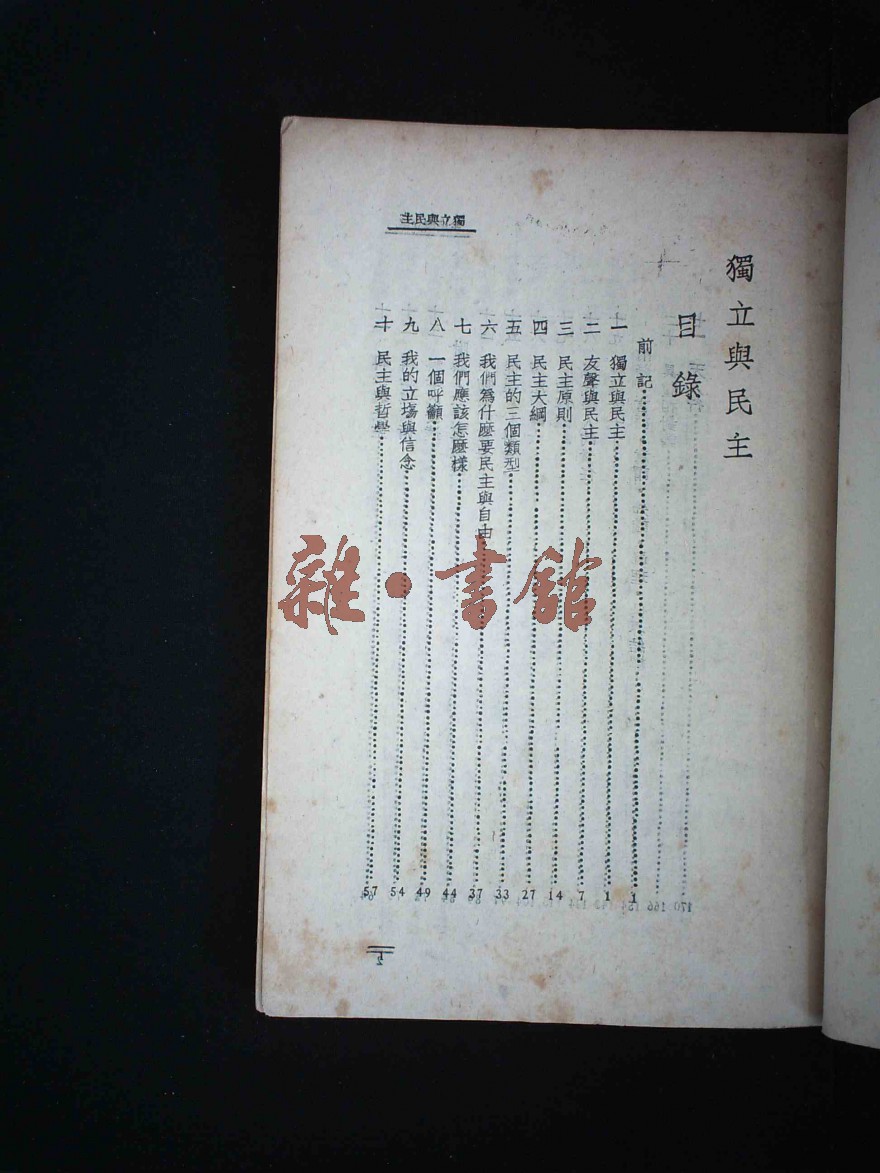 獨立與民主
目錄
前記 1
一 獨立與民主 1
二 友聲與民主 7
三 民主原則 14
四 民主大綱 27
五 民主的三個類型 33
六 我們爲什麼要民主與自由 37
七 我們應該怎麼樣 44
八 一個呼籲 49
九 我的立塲與信念 54
十 民主與哲學 57
主民與立獨
1
雜·書館